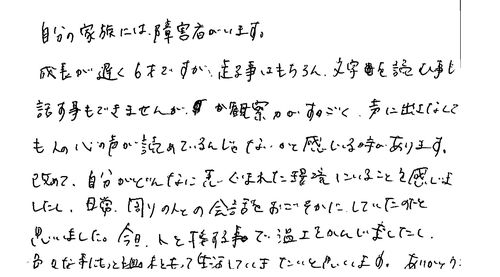 自分の家族には、障害者がいます。
成長が遅く6才ですが、走る事はもちろん、文字を読む事も
話す事もできませんが、観察力がすごく、声に出さなくて
も人の心の声が読めているんじゃないかと感じる時があります。
改めて、自分がどんなに恵ぐまれた環境にいることを感じま
したし、日常、周りの人との会話をおろそかにしていたのだと
思いました。今日、人と接する事で温まをかんじましたし、
色々な事にもっと興味をもって生活していきたいと思います。ありがとう